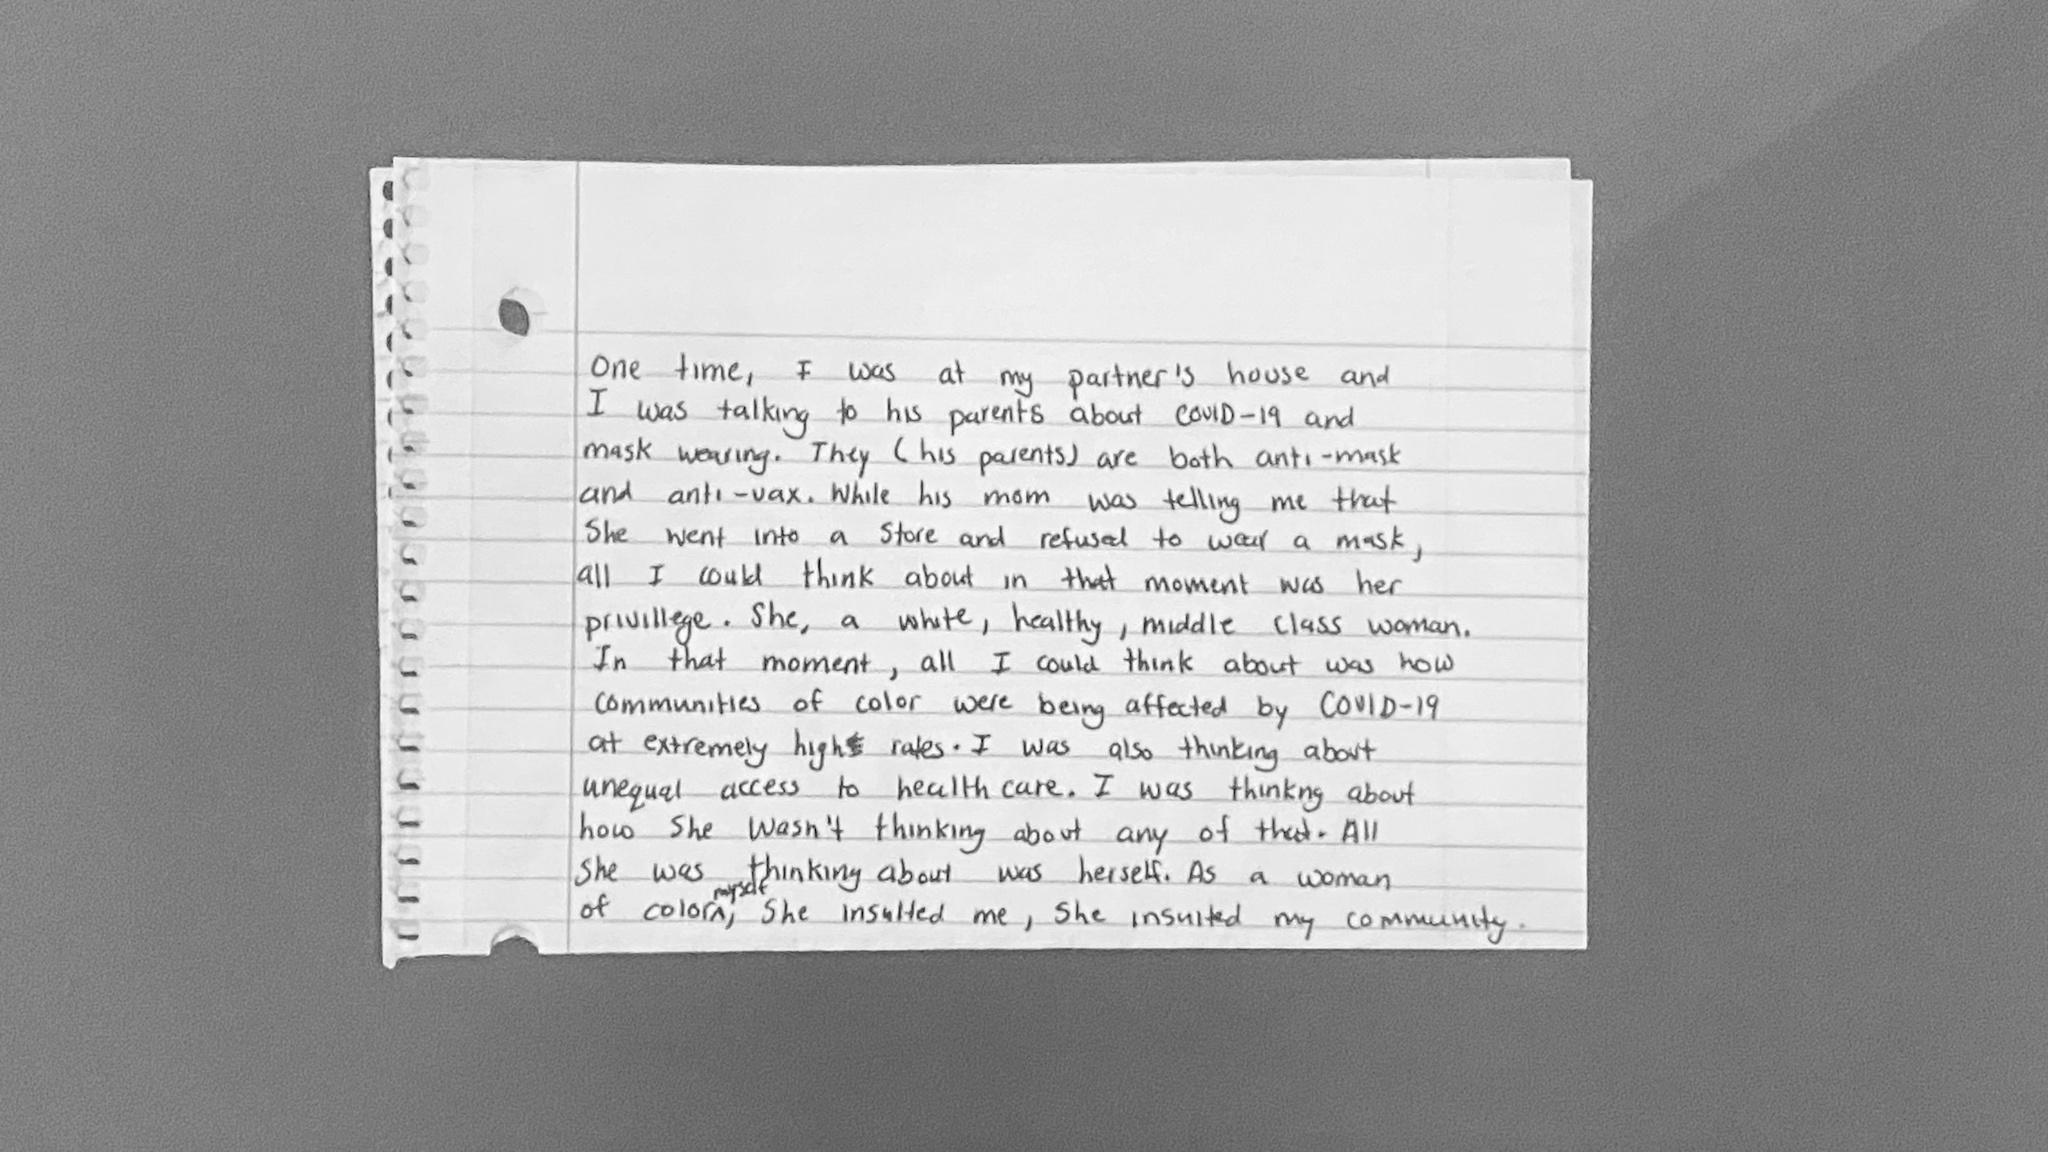 One time, I was at my partner's house and
I was talking to his parents about COVID-19 and
mask wearing. They (his parents) are both anti-mask
and anti-vax. While his mom was telling me that
She went into a Store and refused to wear a mask,
all I could think about in that moment was her
privillege. She, a white, healthy, middle class woman.
In that moment, all I could think about was how
communities of color were being affected by COVID-19
at extremely high rates. I was also thinking about
unequal access to health care. I was thinkng about
how She wasn't thinking about any of that. All
She was thinking about was herself. As a woman
of color myself, She insulted me, She insulted my community.